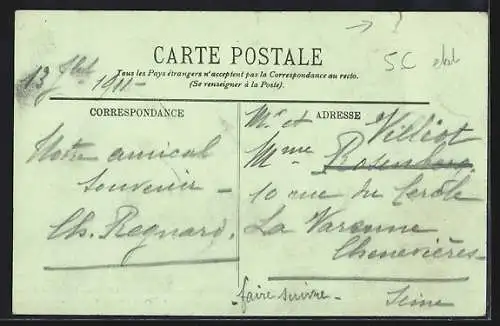 5C
CARTE POSTALE
Tous les Pays étrangers n'acceptent pas la Correspondance au recto.
(Se renseigner à la Poste).
13 Jlet 1911-
CORRESPONDANCE
Notre amical
Souvenir -
Ch. Regnard.
ADRESSE
Mr et Villiot
Mme Rosenberg
10 rue du Cercle
La Varenne
Chenevières-
Seine
- faire suivre -